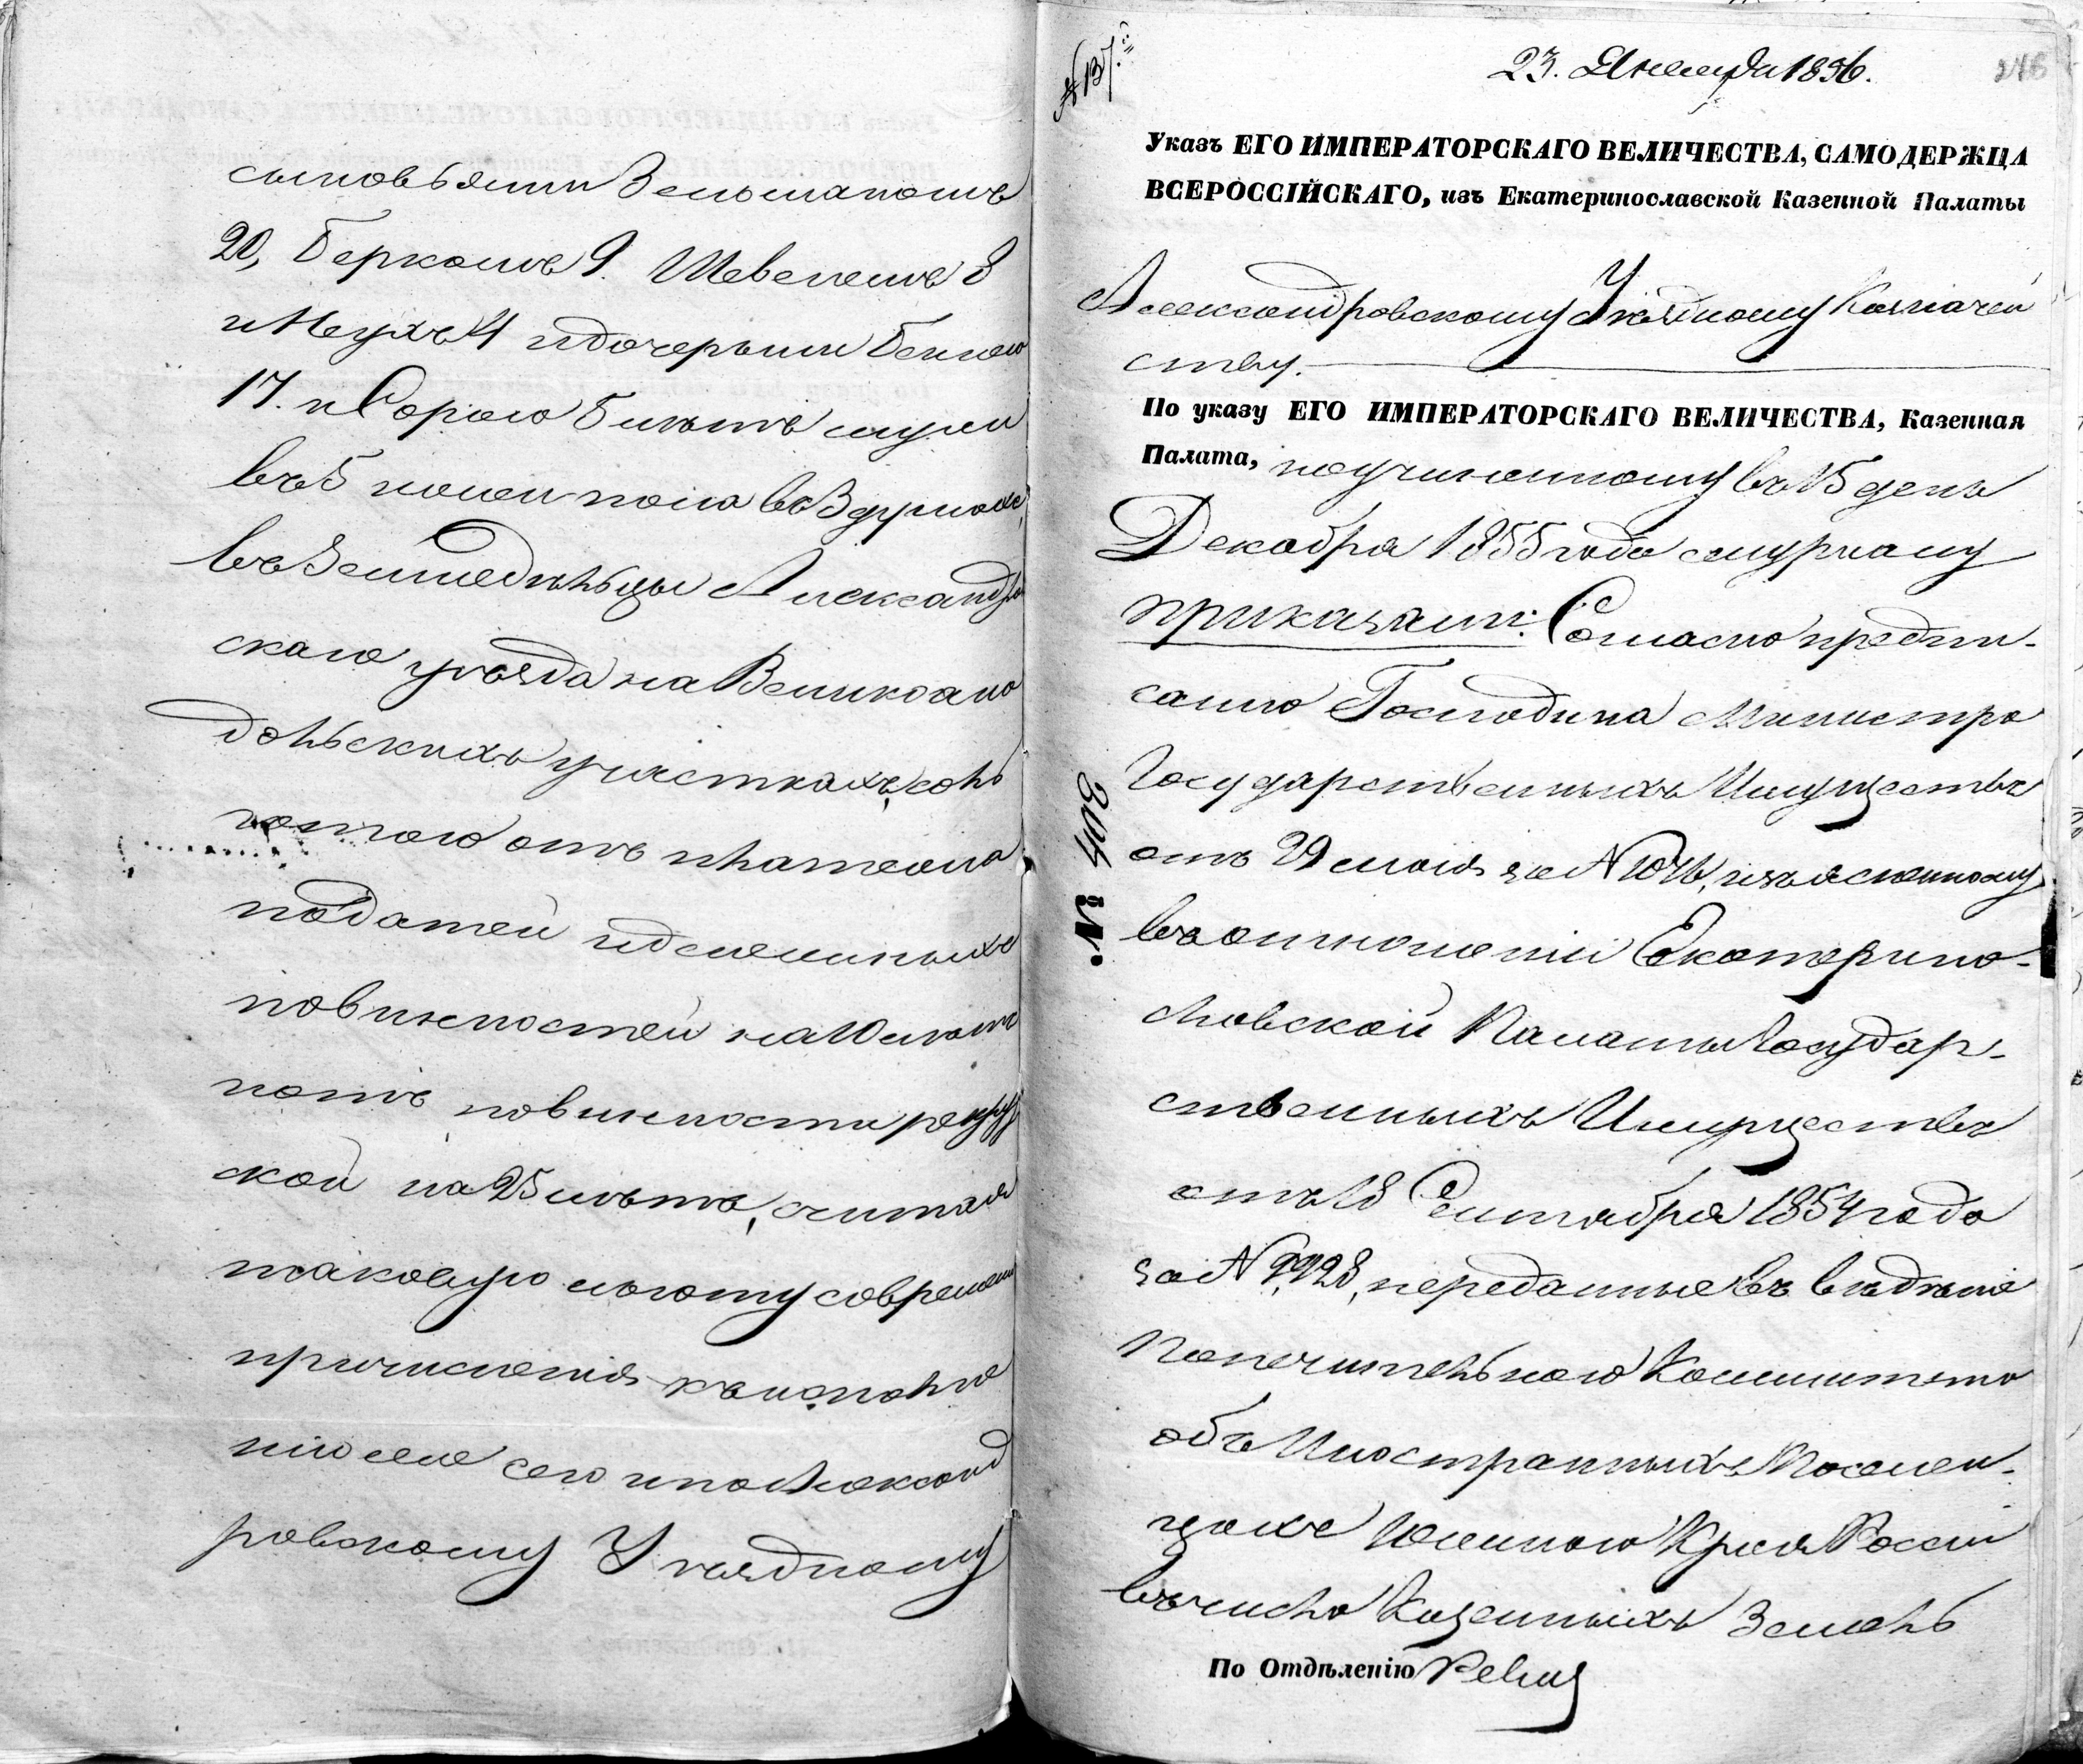 сыновьями Зельманомъ
20, Беркомъ 9. Шевелемъ 8
и Неухъ 4 и дочерьми Бейлею
17. и Сорою 5 лѣтъ муж.
въ 5 жен. пола въ 3 душахъ,
въ Земледѣльцы Александров
скаго уѣзда на Великоана
дольскихъ участкахъ, со ль
готою отъ платежа
податей и денежныхъ
повинностей на 10 лѣтъ
а отъ повинности рекрут
ской на 25 лѣтъ, считая
таковую льготу со времени
причисленія къ исполне
нію сего и по Александ
ровскому Уѣздному
№ 137.
23. Января 1856.
246
Указъ ЕГО ИМПЕРАТОРСКАГО ВЕЛИЧЕСТВА, САМОДЕРЖЦА
ВСЕРОССІЙСКАГО, изъ Екатеринославской Казенной Палаты
Александровскому Уѣздному Казначей
ству.
По указу ЕГО ИМПЕРАТОРСКАГО ВЕЛИЧЕСТВА, Казенная
Палата, по учиненному въ 15 день
Декабря 1855 года журналу
приказали: Согласно предпи-
санію Господина Министра
Государственныхъ Имуществъ
отъ 29 мая за № изъясненному
въ отношеніи Екатерино-
славской Палаты Государ-
ственныхъ Имуществъ
отъ 18 Сентября 1854 года
за № 9928, переданные въ вѣдѣніе
Попечительнаго Комитета
объ Иностранныхъ Поселен-
цахъ Южнаго Края Россіи
въ число Казенныхъ Земель
По Отдѣленію Ревиз
№ 408